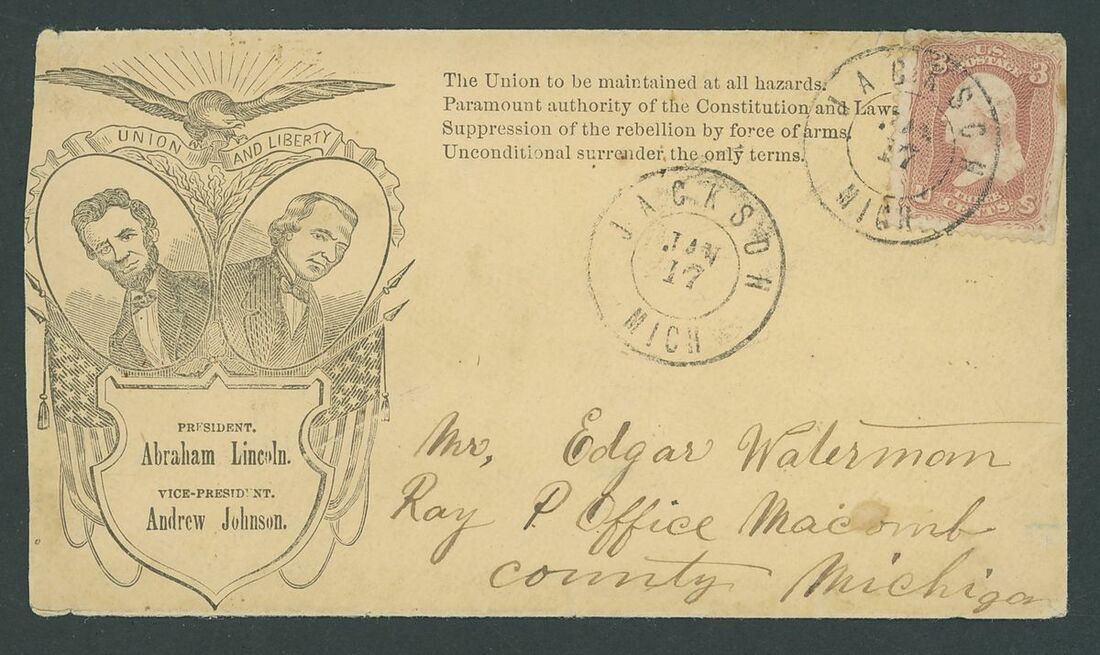 UNION AND LIBERTY
PRESIDENT.
Abraham Lincoln.
VICE-PRESIDENT.
Andrew Johnson.
The Union to be maintained at all hazards.
Paramount authority of the Constitution and Laws
Suppression of the rebellion by force of arms.
Unconditional surrender the only terms.
JACKSON
JAN
17
MICH
JACKSON
JAN
17
MICH
3 3
U.S.
POSTAGE
CENTS
JACKSON
Mr, Edgar Waterman
Ray P Office Macomb
county Michigan